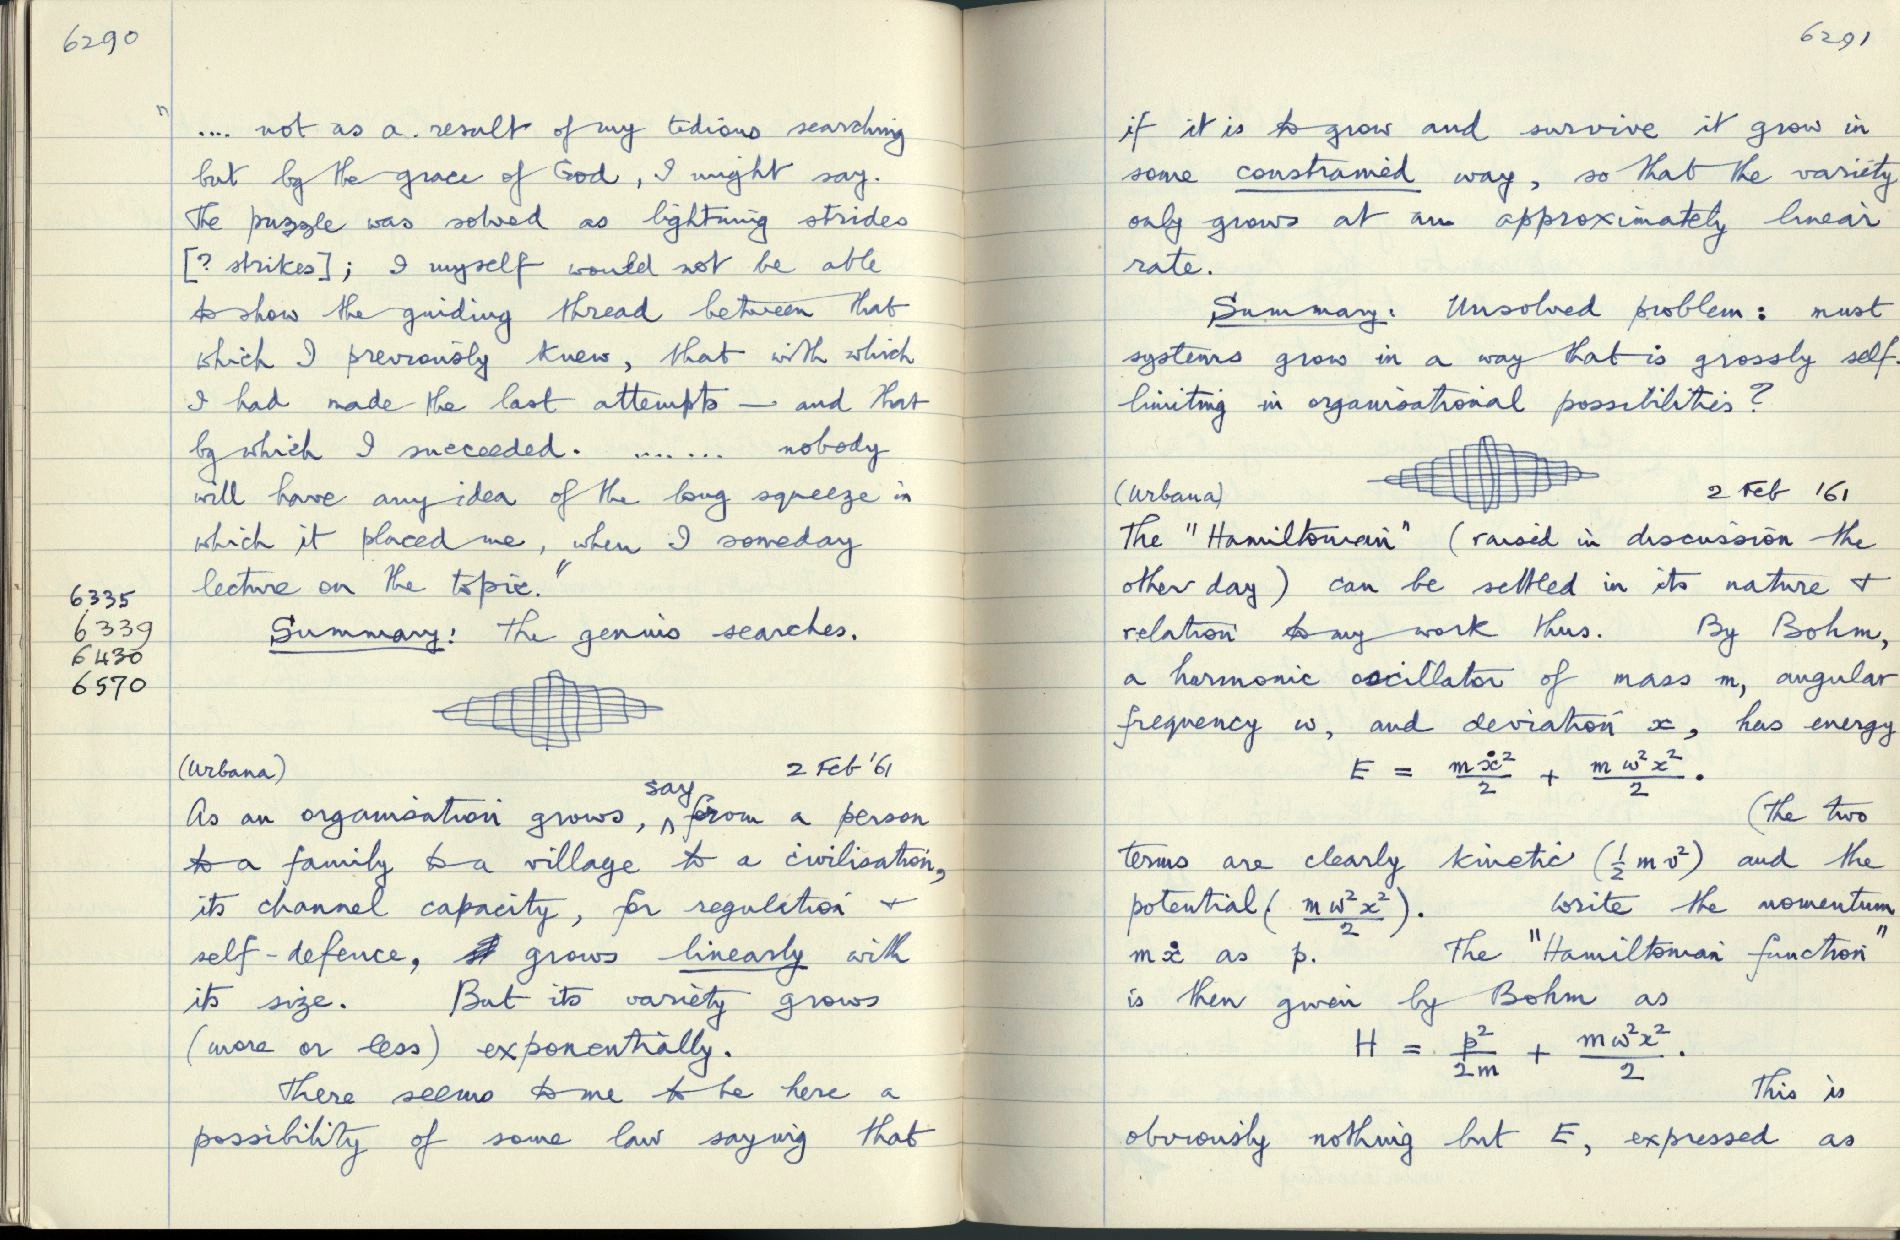 6290
" .... not as a result of my tedious searching
but by the grace of God, I might say.
The puzzle was solved as lightning strides
[? strikes]; I myself would not be able
to show the guiding thread between that
which I previously knew, that with which
I had made the last attempts — and that
by which I succeeded. ....... nobody
will have any idea of the long squeeze in
which it placed me, when I someday
lecture on the topic."
6335
6339
6430
6570
Summary: The genius searches.
(Urbana) 2 Feb '61
As an organisation grows, say from a person
to a family to a village to a civilisation,
its channel capacity, for regulation +
self-defence, grows linearly with
its size. But its variety grows
(more or less) exponentially.
There seems to me to be here a
possibility of some law saying that
6291
if it is to grow and survive it grow in
some constrained way, so that the variety
only grows at an approximately linear
rate.
Summary: Unsolved problem: must
systems grow in a way that is grossly self-
limiting in organisational possibilities?
(Urbana) 2 Feb '61
The "Hamiltonian" (raised in discussion the
other day) can be settled in its nature +
relation to my work thus. By Bohm,
a harmonic oscillator of mass m, angular
frequency ω, and deviation x, has energy
E = mẋ²/2 + mω²x²/2.
(the two
terms are clearly kinetic (½mv²) and the
potential (mω²x²/2). Write the momentum
mẋ as p. The "Hamiltonian function"
is then given by Bohm as
H = p²/2m + mω²x²/2.
This is
obviously nothing but E, expressed as